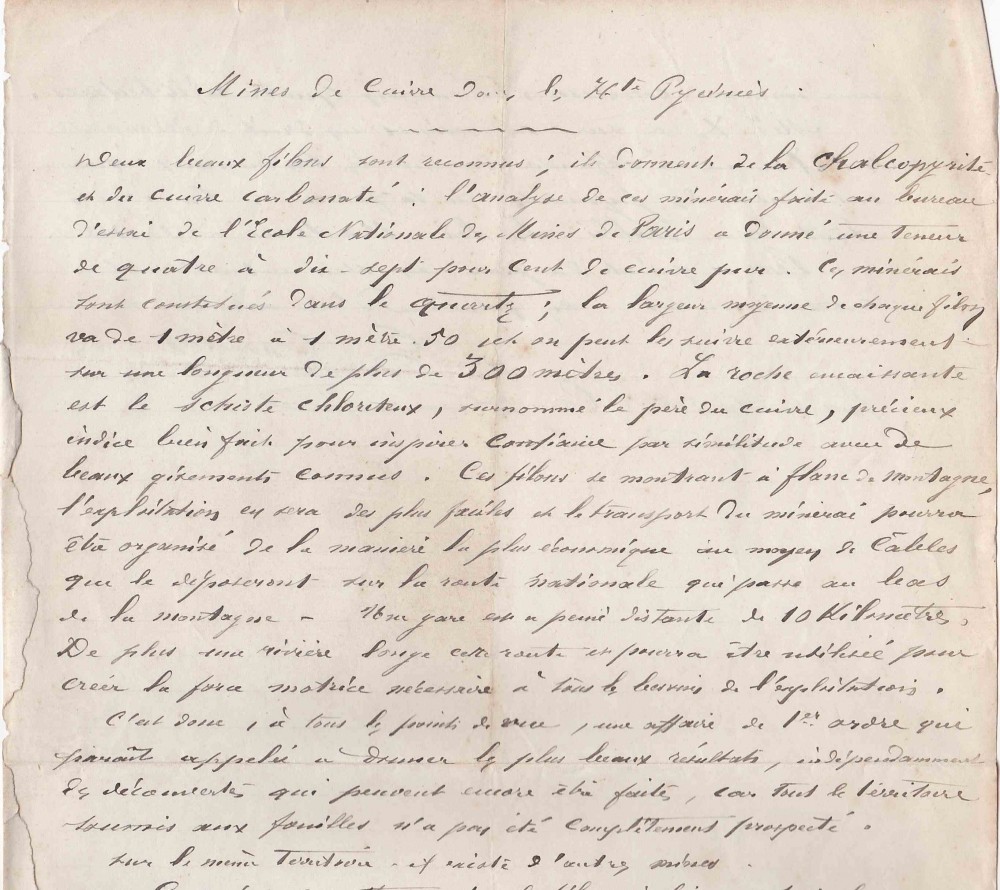 Mines de Cuivre dans les Htes Pyrénées.
Deux beaux filons sont reconnus ; ils donnent de la Chalcopyrite
et du cuivre carbonaté : l'analyse de ces minérais faite au bureau
d'essai de l'École Nationale des Mines de Paris a donné une teneur
de quatre à dix-sept pour cent de cuivre pur. Ces minérais
sont constitués dans le quartz ; la largeur moyenne de chaque filon
va de 1 mètre à 1 mètre.50 et on peut les suivre extérieurement
sur une longueur de plus de 300 mètres. La roche encaissante
est le schiste chloriteux, surnommé le père du cuivre, précieux
indice bien fait pour inspirer confiance par similitude avec de
beaux gisements connus. Ces filons se montrant à flanc de montagne,
l'exploitation en sera des plus faciles et le transport du minérai pourra
être organisé de la manière la plus économique au moyen de Câbles
qui le déposeront sur la route nationale qui passe au bas
de la montagne - Une gare est à peine distante de 10 Kilomètres.
De plus une rivière longe cette route et pourra être utilisée pour
créer la force motrice nécessaire à tous les besoins de l'exploitation.
C'est donc, à tous les points de vue, une affaire de 1er ordre qui
paraît appelée à donner les plus beaux résultats, indépendamment
des découvertes qui peuvent encore être faites, car tout le térritoire
soumis aux fouilles n'a pas été complètement prospecté.
sur le même Territoire - il existe d'autres mines.